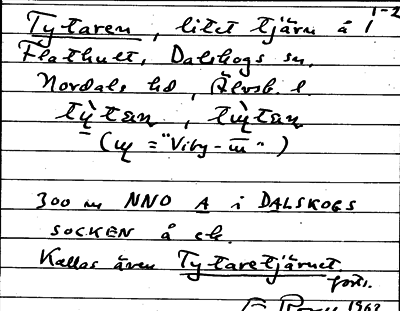 Tytaren, litet tjärn å 1 1-2
Flathult, Dalskogs sn,
Nordals hd, Älvsb. l.
tỳtan, tɯ̀tan
(ɯ = "Viby-ɯ̅")
300 m NNO A i DALSKOGS
SOCKEN å ek.
Kallas även Tytaretjärnet.
forts.
1963